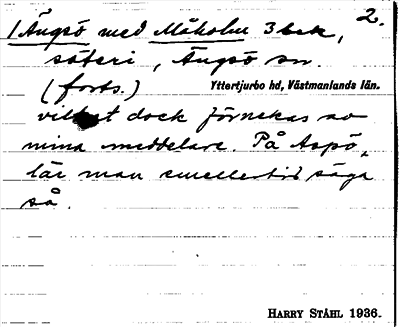 1 Ängsö med Måholm 3 bek, 2.
säteri, Ängsö sn.
(forts.) Yttertjurbo hd, Västmanlands län.
vilket dock förnekas av
mina meddelare. På Aspö
lär man emellertid säga
så.
HARRY STÅHL 1936.